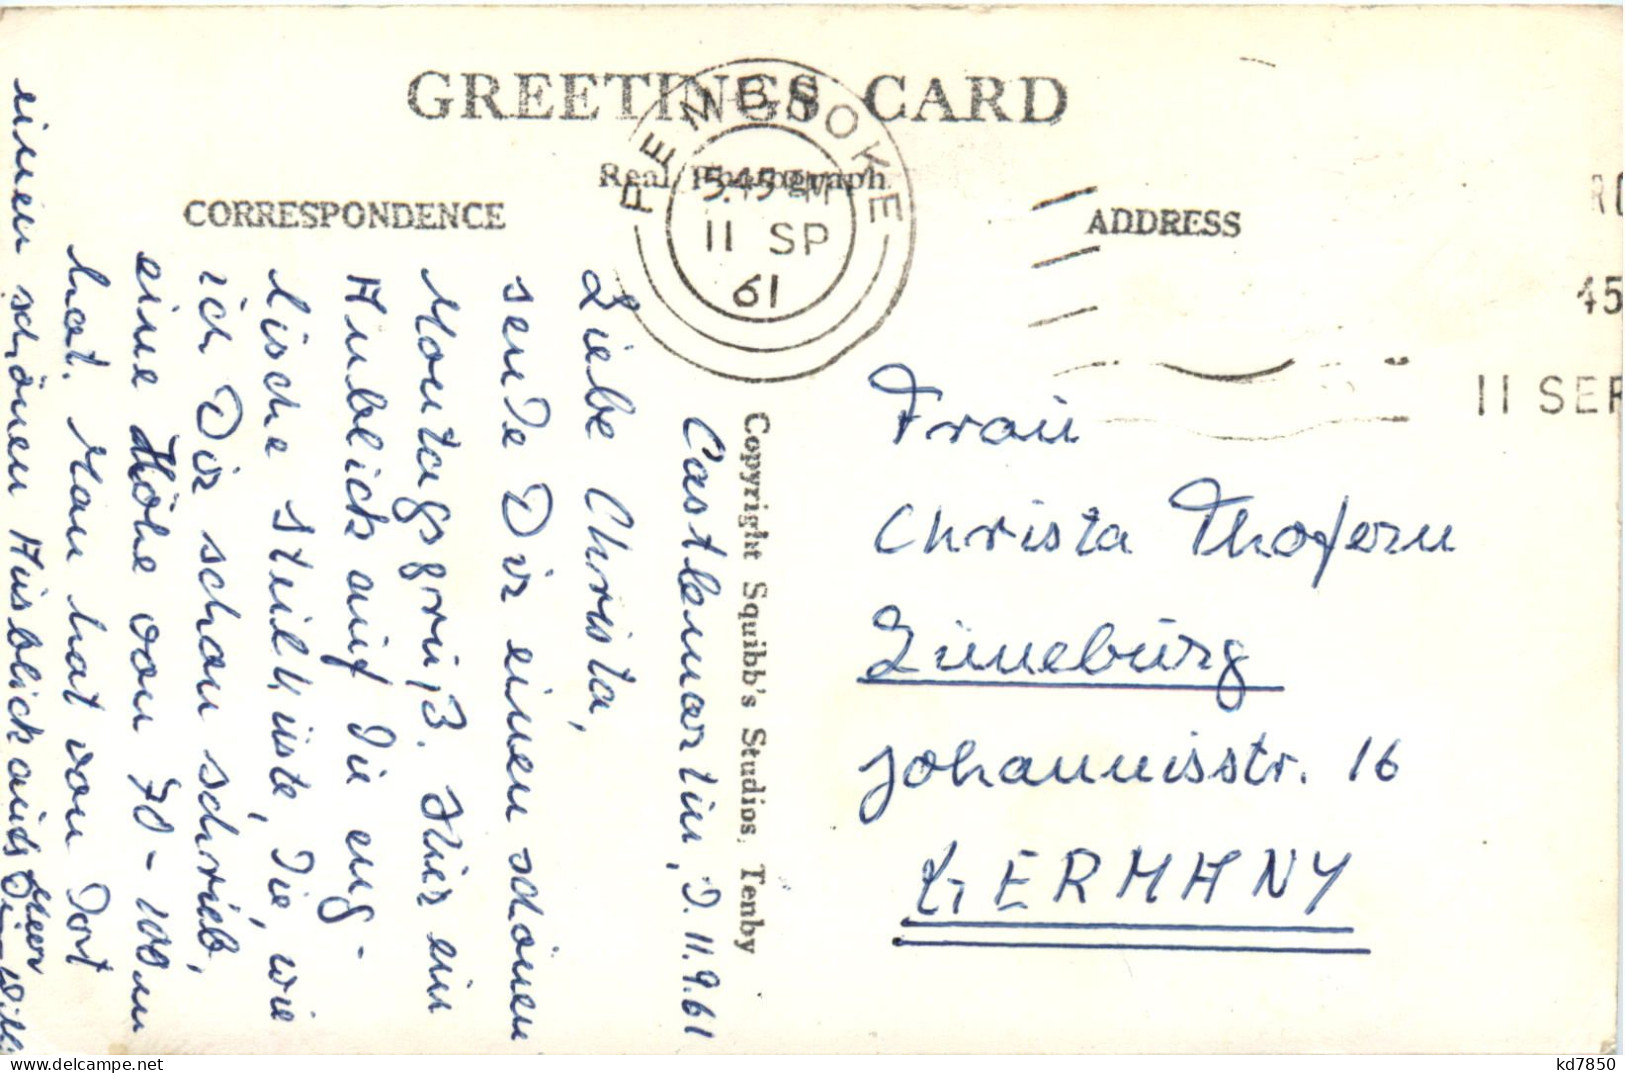 GREETINGS CARD
Real Photograph
CORRESPONDENCE
ADDRESS
PEMBROKE
5.45 PM
11 SP
61
45
11 SEP
Castlemartin, d. 11.9.61
Liebe Christa,
sende Dir einen schönen
Montagsgruß. Hier ein
Anblick auf die eng-
lische Steilküste, die, wie
ich Dir schon schrieb,
eine Höhe von 70-100m
hat. Man hat von dort
einen schönen Ausblick aufs Meer
Dein Willi
Copyright Squibb's Studios, Tenby
Frau
Christa Thofern
Lüneburg
Johannisstr. 16
GERMANY
kd7850